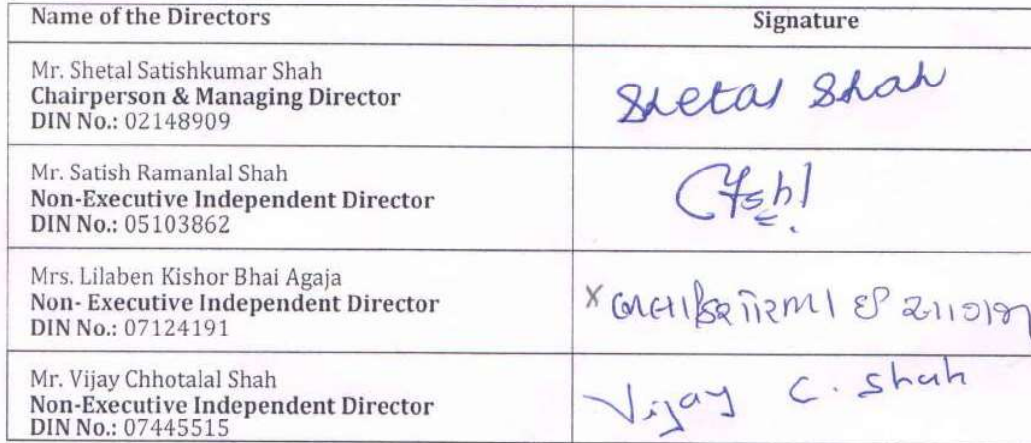 Name of the Directors Signature
Mr. Shetal Satishkumar Shah
Chairperson & Managing Director
DIN No.: 02148909
Shetal Shah
Mr. Satish Ramanlal Shah
Non-Executive Independent Director
DIN No.: 05103862
Mrs. Lilaben Kishor Bhai Agaja
Non- Executive Independent Director
DIN No.: 07124191
X
Mr. Vijay Chhotalal Shah
Non-Executive Independent Director
DIN No.: 07445515
Vijay C. Shah